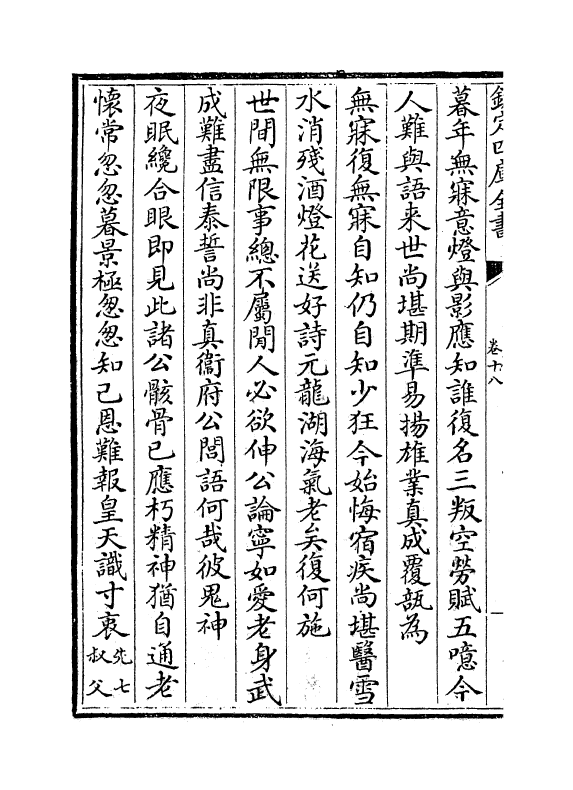 欽定四庫全書
卷十八
暮年無寐意燈與影應知誰復名三叛空勞賦五噫今
人難與語来世尚堪期準易揚雄業真成覆瓿為
無寐復無寐自知仍自知少狂今始悔宿疾尚堪醫雪
水消殘酒燈花送好詩元龍湖海氣老矣復何施
世間無限事總不屬閒人必欲伸公論寧如愛老身武
成難盡信泰誓尚非真衞府公閭語何哉彼鬼神
夜眠纔合眼即見此諸公骸骨已應朽精神猶自通老
懷常忽忽暮景極怱怱知己恩難報皇天識寸衷先七
叔父